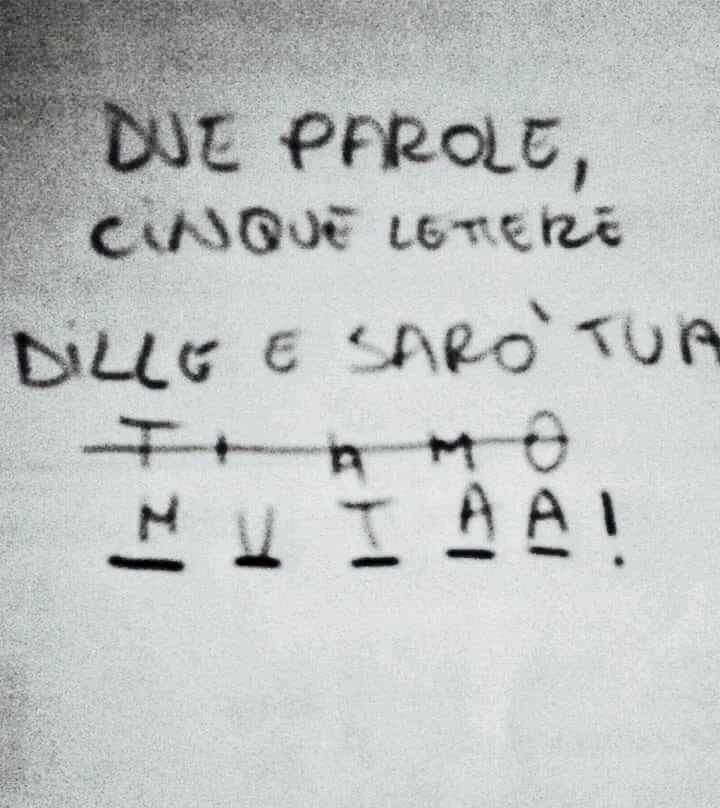 DUE PAROLE,
CINQUE LETTERE
DILLE E SARO' TUA
T I A M O
M U T A A !